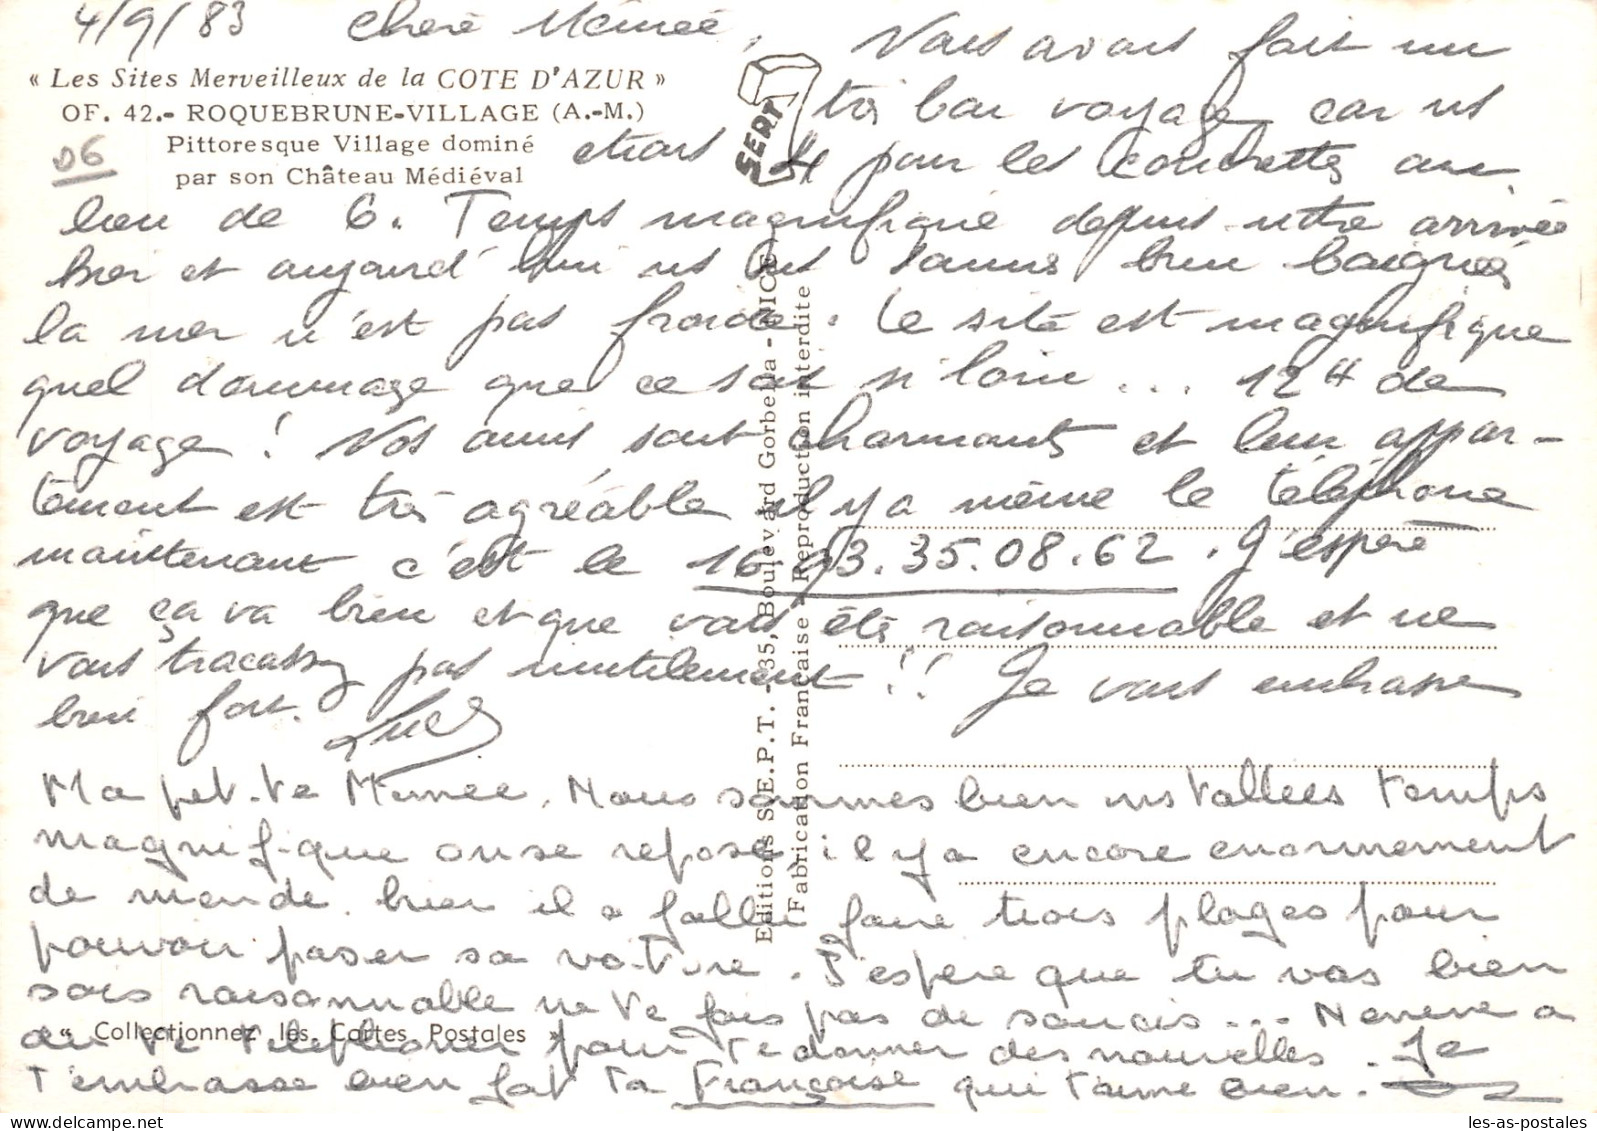 4/9/83 Chère Mémée, Nous avons fait un
« Les Sites Merveilleux de la COTE D'AZUR »
OF. 42.- ROQUEBRUNE-VILLAGE (A.-M.)
Pittoresque Village dominé
par son Château Médiéval
06
SEPT
très bon voyage car ns
étions 4 pour les couchettes au
lieu de 6. Temps magnifique depuis notre arrivée
hier et aujourd'hui ns ns sommes bien baignés
la mer n'est pas froide. Le site est magnifique
quel dommage que ce soit si loin... 12H de
voyage ! Vos amis sont charmants et leur appar-
tement est très agréable il y a même le téléphone
maintenant c'est le 16.93.35.08.62. J'espère
que ça va bien et que vous êtes raisonnable et ne
vous tracassez pas inutilement !! Je vous embrasse
bien fort.
Editions S.E.P.T. - 35, Boulevard Gorbella - NICE
Fabrication Française - Reproduction interdite
Ma petite Mémée, Nous sommes bien installées temps
magnifique on se repose il y a encore enormement
de monde. hier il a fallu faire trois plages pour
pouvoir paser sa voiture. J'espere que tu vas bien
sois raisonnable ne te fais pas de soucis...
« Collectionnez les Cartes Postales »
du te telephoner pour te donner des nouvelles. Je
t'embrasse bien fort ta Françoise qui t'aime bien.
les-as-postales